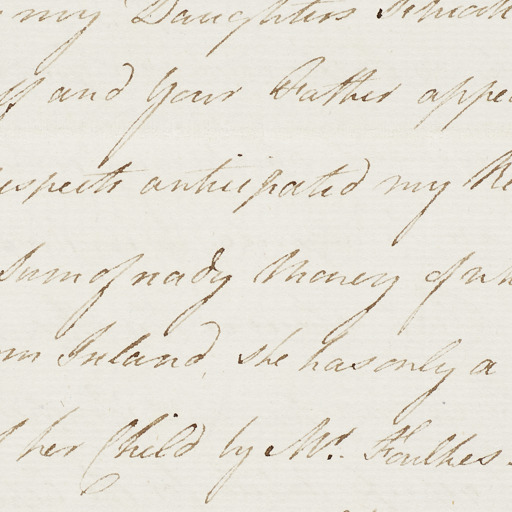 my Daughters
and Your Father appe
espects anticipated my Re
Sum of ready Money of wh
om Ireland, she has only a
her Child by Mr. Foulkes